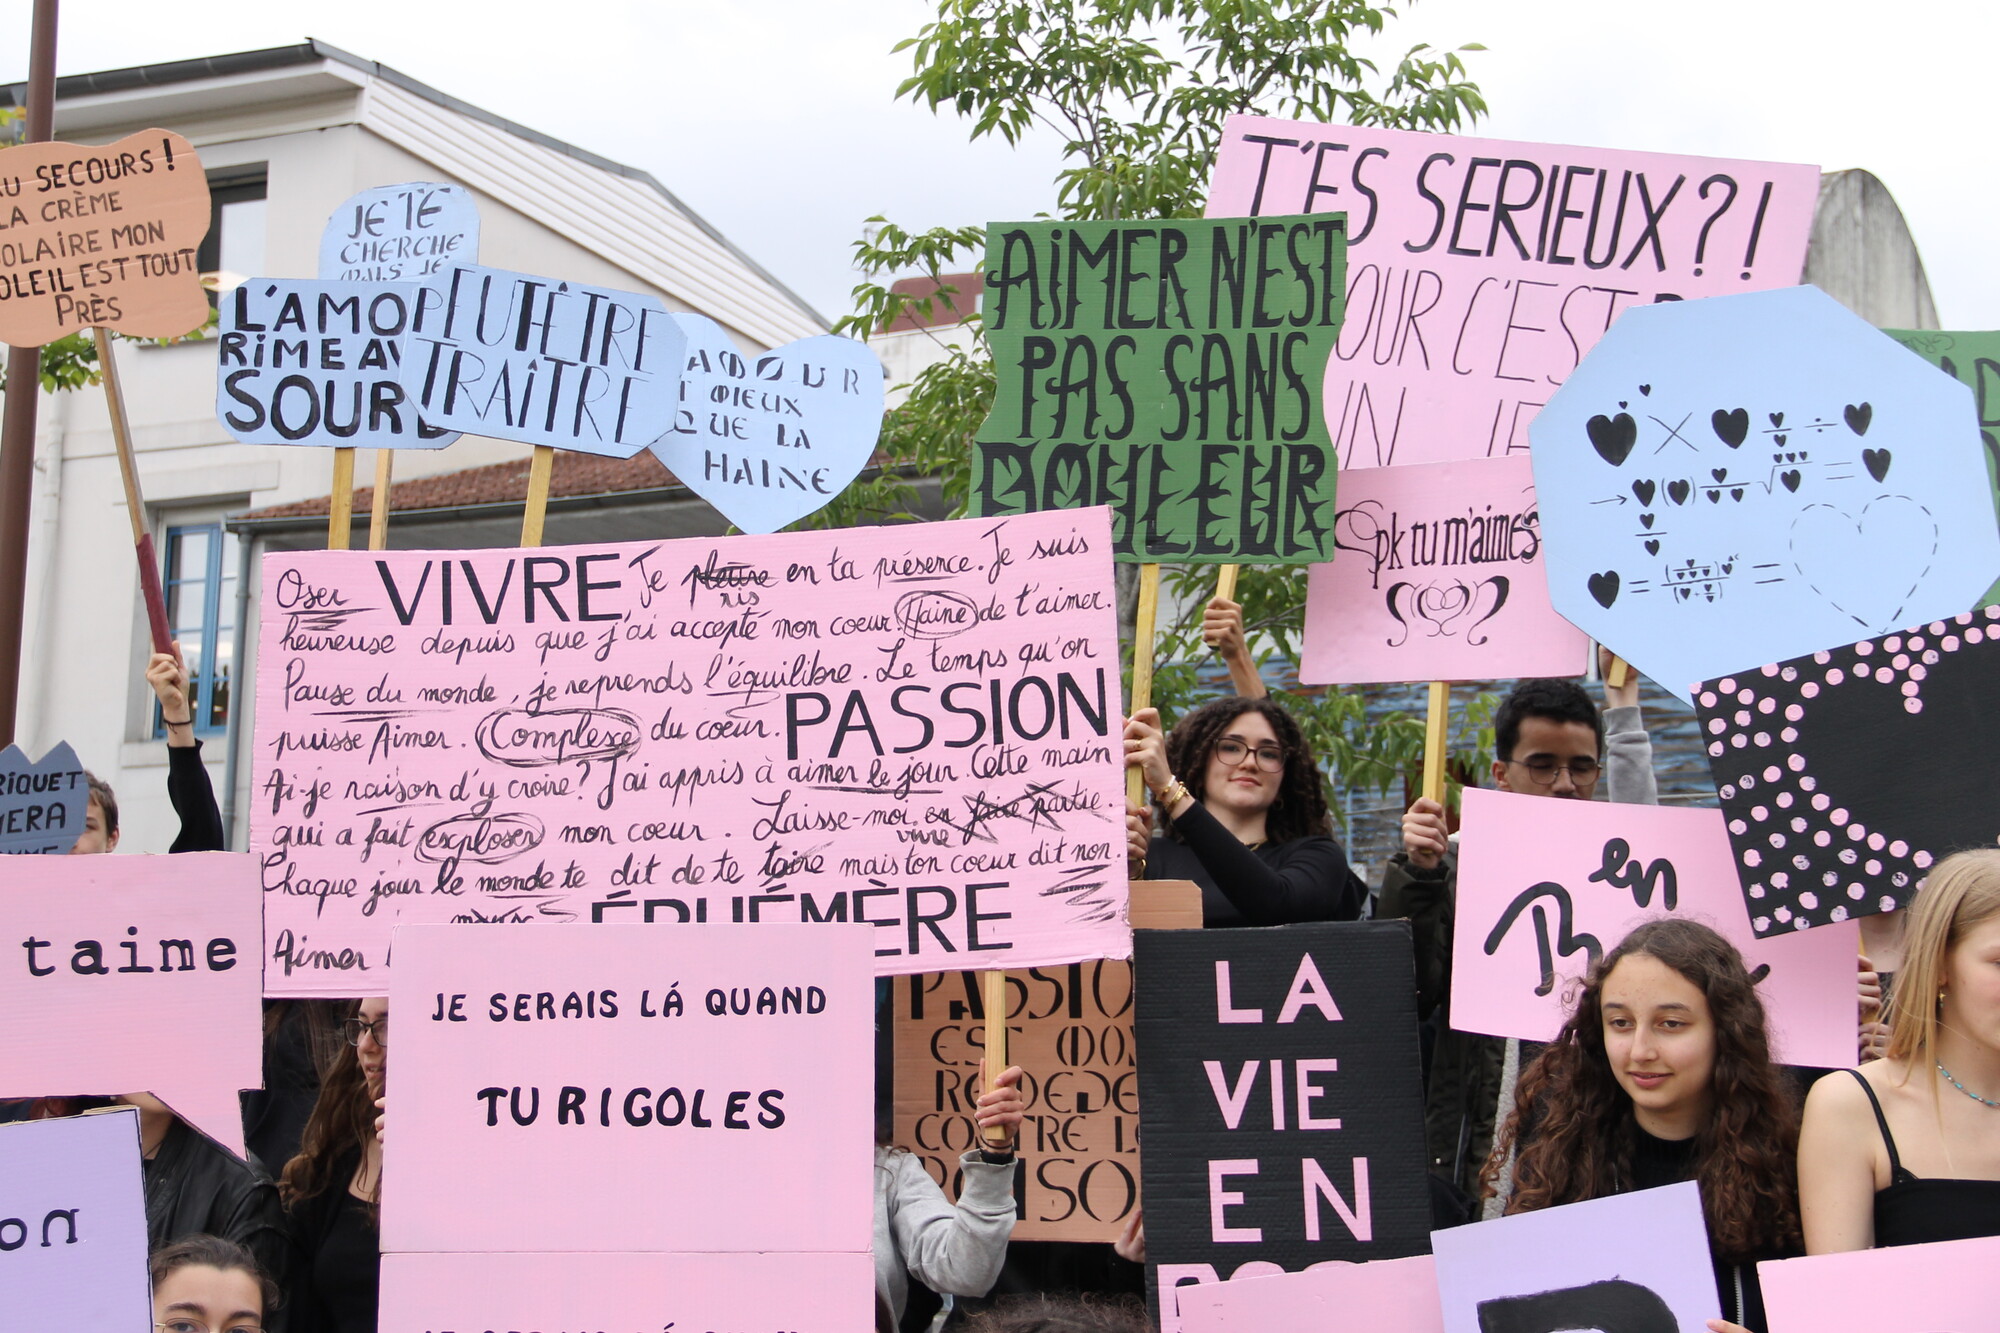 AU SECOURS !
LA CRÈME
SOLAIRE MON
SOLEIL EST TOUT
PRÈS
JE TE
CHERCHE
MAIS JE
L'AMO
RIME AV
SOURD
PEUT ÊTRE
TRAÎTRE
AMOUR
MIEUX
QUE LA
HAINE
AIMER N'EST
PAS SANS
DOULEUR
T'ES SERIEUX ? !
OUR C'EST
UN
pk tu m'aimes
Oser VIVRE Je pleure en ta présence. Je suis
ris
heureuse depuis que j'ai accepté mon coeur. Haine de t'aimer.
Pause du monde, je reprends l'équilibre. Le temps qu'on
puisse Aimer. Complexe du coeur. PASSION
Ai-je raison d'y croire ? J'ai appris à aimer le jour. Cette main
qui a fait exploser mon coeur. Laisse-moi en faire partie.
vivre
Chaque jour le monde te dit de te taire mais ton coeur dit non.
Aimer ÉPHÉMÈRE
RIQUET
taime
on
JE SERAIS LÁ QUAND
TU RIGOLES
PASSIO
EST
CONTRE L
LA
VIE
EN
Ben